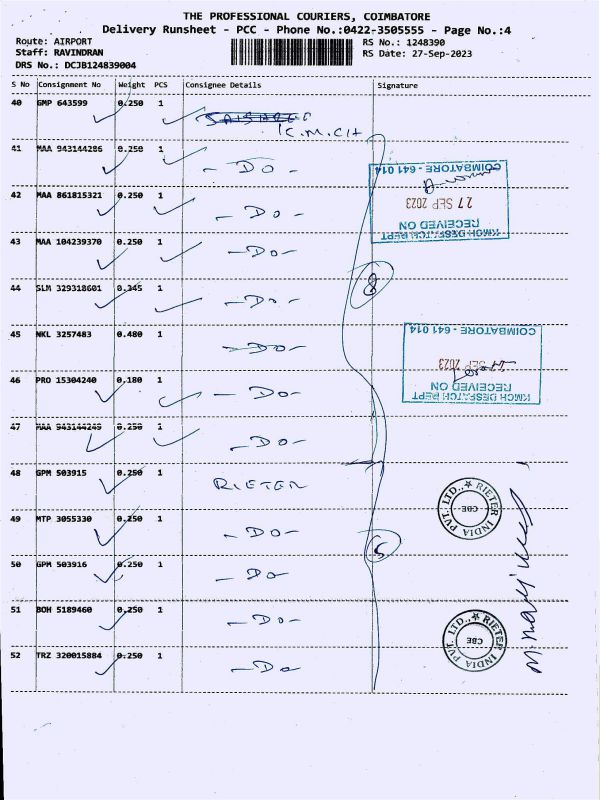 THE PROFESSIONAL COURIERS, COIMBATORE
Delivery Runsheet - PCC - Phone No.:0422-3505555 - Page No.:4
Route: AIRPORT
Staff: RAVINDRAN
DRS No.: DCJB124839004
RS No.: 1248390
RS Date: 27-Sep-2023
S No Consignment No Weight PCS Consignee Details Signature
40 GMP 643599 0.250 1
K.M.C.H
41 MAA 943144286 0.250 1 - Do -
42 MAA 861815321 0.250 1 - Do -
43 MAA 104239370 0.250 1 - Do -
44 SLM 329318601 0.345 1 - Do -
45 NKL 3257483 0.480 1 - Do -
46 PRO 15304240 0.180 1 - Do -
47 MAA 943144249 0.250 1 - Do -
48 GPM 503915 0.250 1 RIETER
49 MTP 3055330 0.250 1 - Do -
50 GPM 503916 0.250 1 - Do
51 BOH 5189460 0.250 1 - Do -
52 TRZ 320015884 0.250 1 - Do
KMCH DESPATCH DEPT
RECEIVED ON
27 SEP 2023
COIMBATORE - 641 014
8
KMCH DESPATCH DEPT
RECEIVED ON
SEP 2023
COIMBATORE - 641 014
RIETER INDIA PVT. LTD.,
CBE
5
RIETER INDIA PVT. LTD.,
CBE